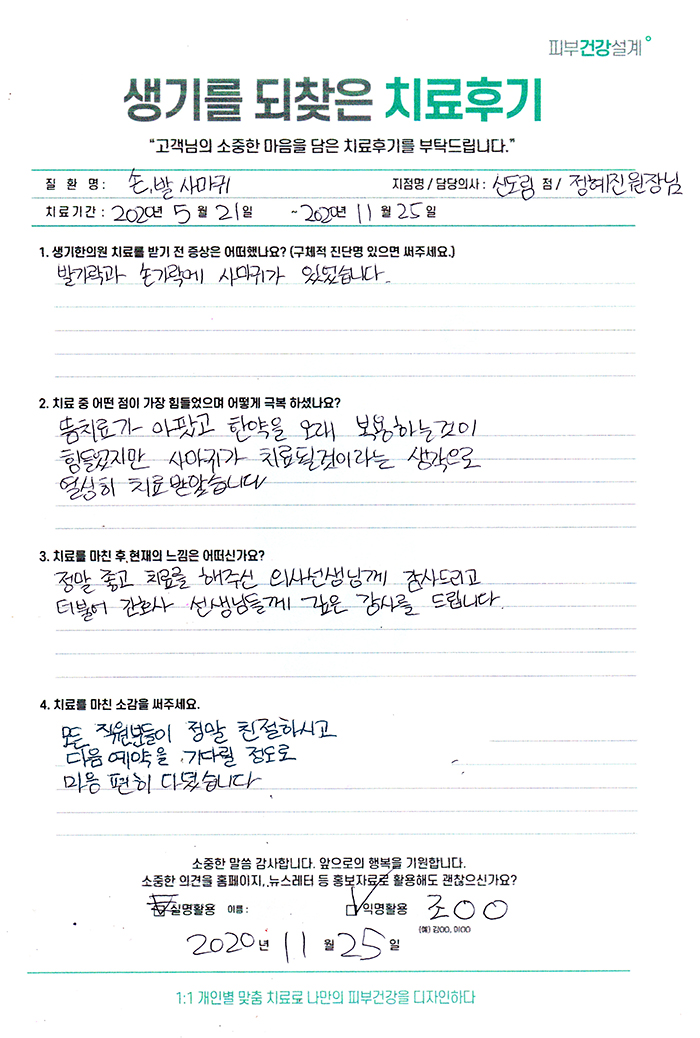 피부건강설계
생기를 되찾은 치료후기
"고객님의 소중한 마음을 담은 치료후기를 부탁드립니다."
질 환 명 : 손, 발 사마귀 지점명 / 담당의사 : 신도림 점 / 정혜진원장님
치료기간 : 2020년 5월 21일 ~2020년 11월 25일
1. 생기한의원 치료를 받기 전 증상은 어떠했나요? (구체적 진단명 있으면 써주세요.)
발가락과 손가락에 사마귀가 있었습니다.
2. 치료 중 어떤 점이 가장 힘들었으며 어떻게 극복 하셨나요?
뜸치료가 아팠고 한약을 오래 복용하는것이
힘들었지만 사마귀가 치료될것이라는 생각으로
열심히 치료받았습니다
3. 치료를 마친 후, 현재의 느낌은 어떠신가요?
정말 좋고 치료를 해주신 의사선생님께 감사드리고
더불어 간호사 선생님들께 깊은 감사를 드립니다.
4. 치료를 마친 소감을 써주세요.
모든 직원분들이 정말 친절하시고
다음 예약을 기다릴 정도로
마음 편히 다녔습니다
소중한 말씀 감사합니다. 앞으로의 행복을 기원합니다.
소중한 의견을 홈페이지, 뉴스레터 등 홍보자료로 활용해도 괜찮으신가요?
실명활용 이름 : 익명활용 조OO
(예) 김OO, 이OO
2020년 11월 25일
1:1 개인별 맞춤 치료로 나만의 피부건강을 디자인하다